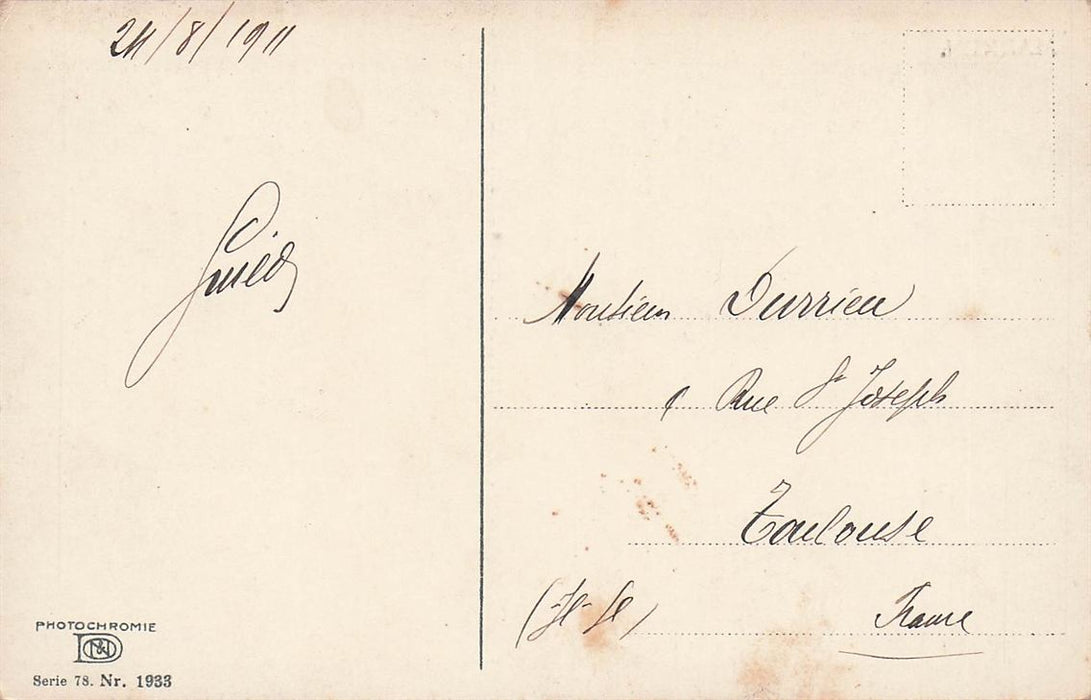 24/8/1911
Monsieur Durrieu
1 Rue St Joseph
Toulouse
(Hte Gne)
France
PHOTOCHROMIE
Serie 78. Nr. 1933